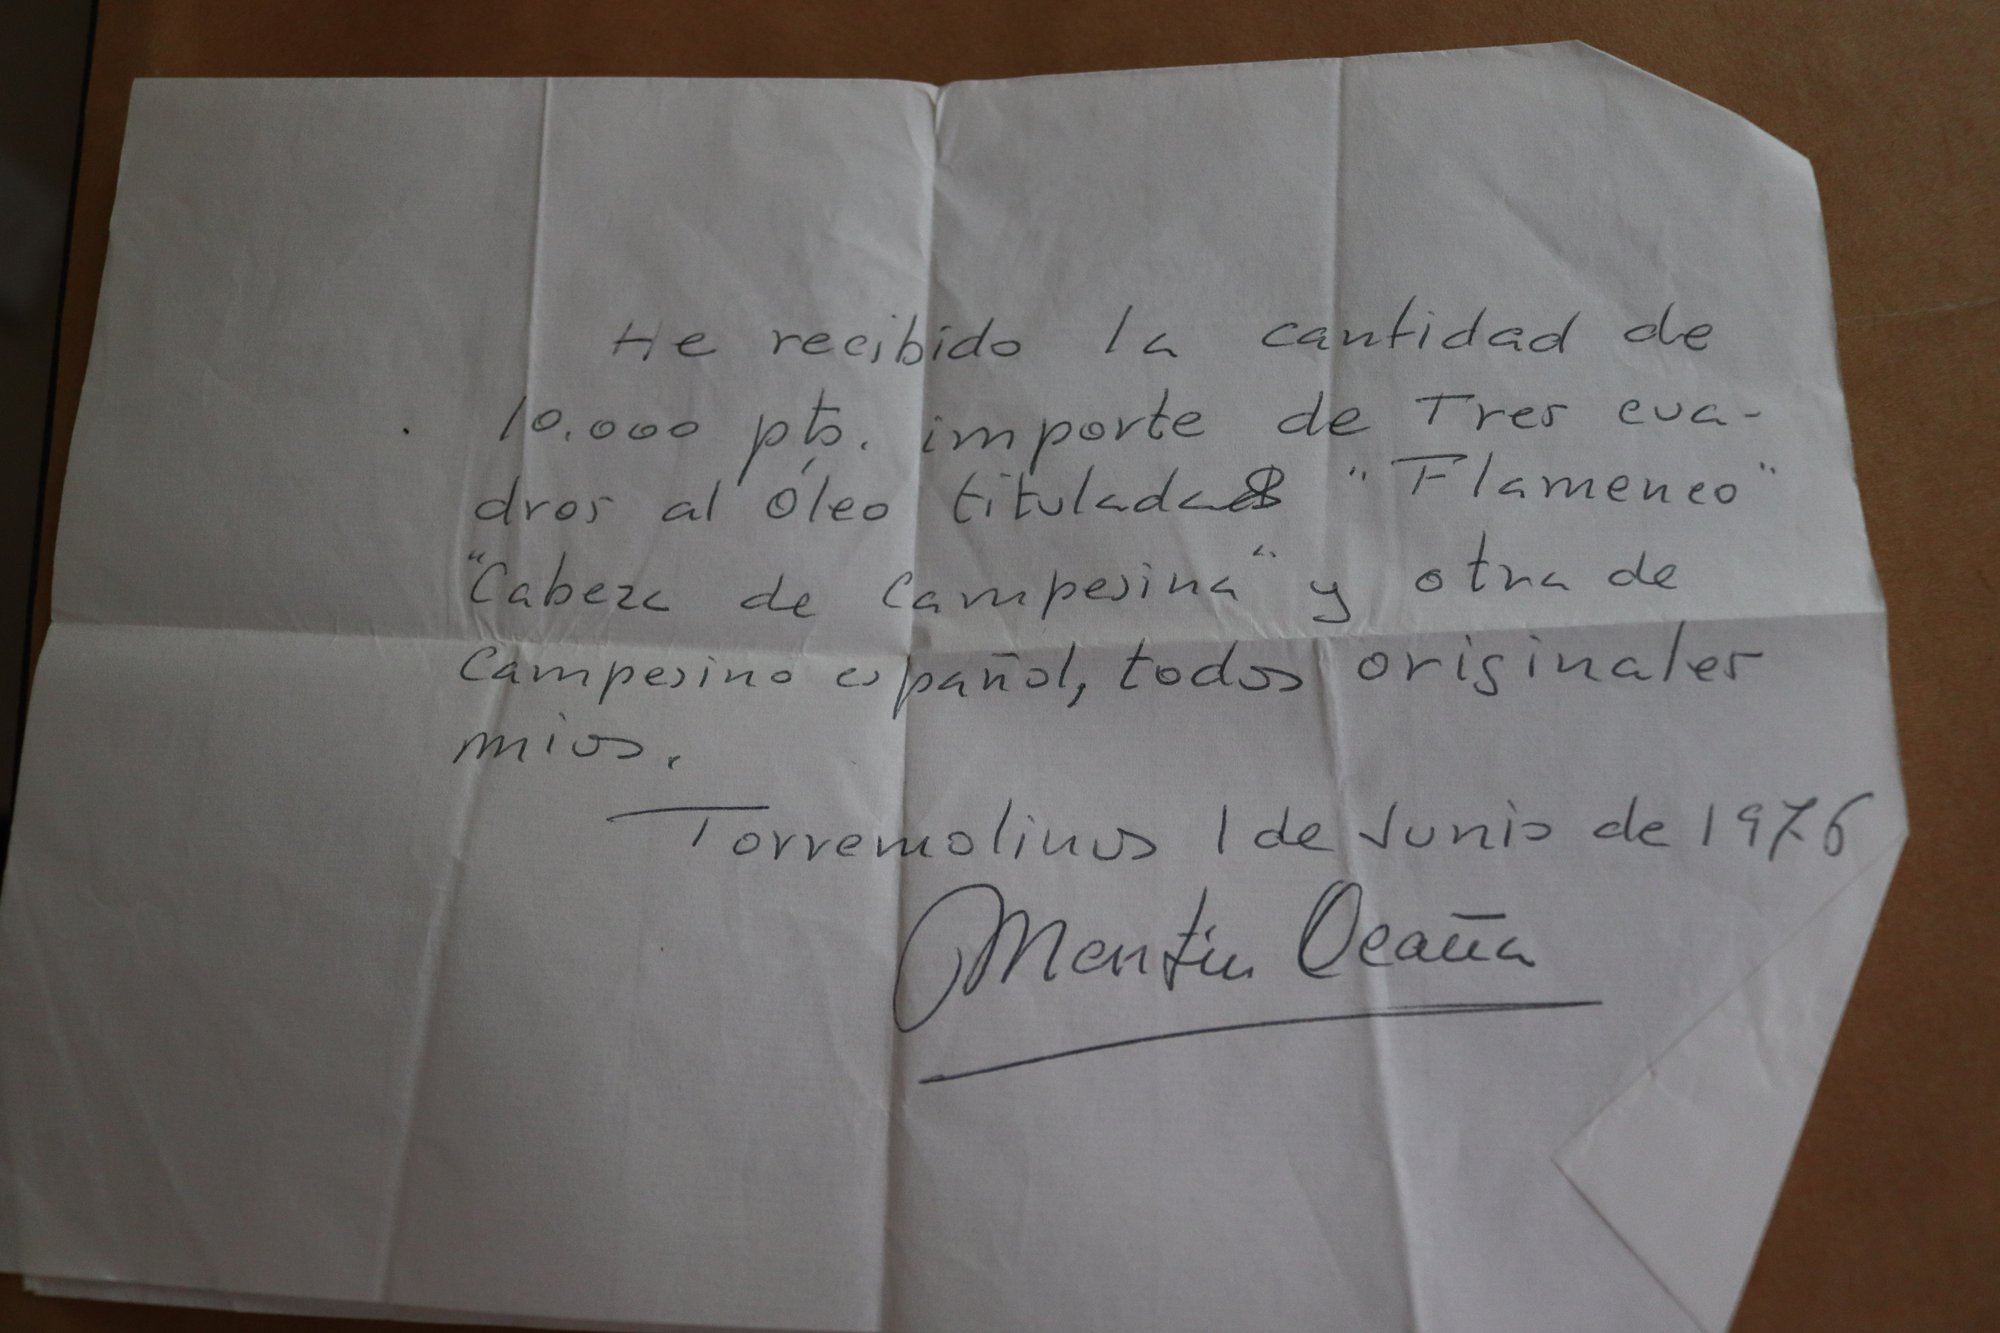 He recibido la cantidad de
10.000 pts. importe de Tres cua-
dros al óleo titulados "Flamenco"
"Cabeza de Campesina" y otra de
Campesino español, todos originales
mios.
Torremolinos 1 de Junio de 1976
Martin Ocaña